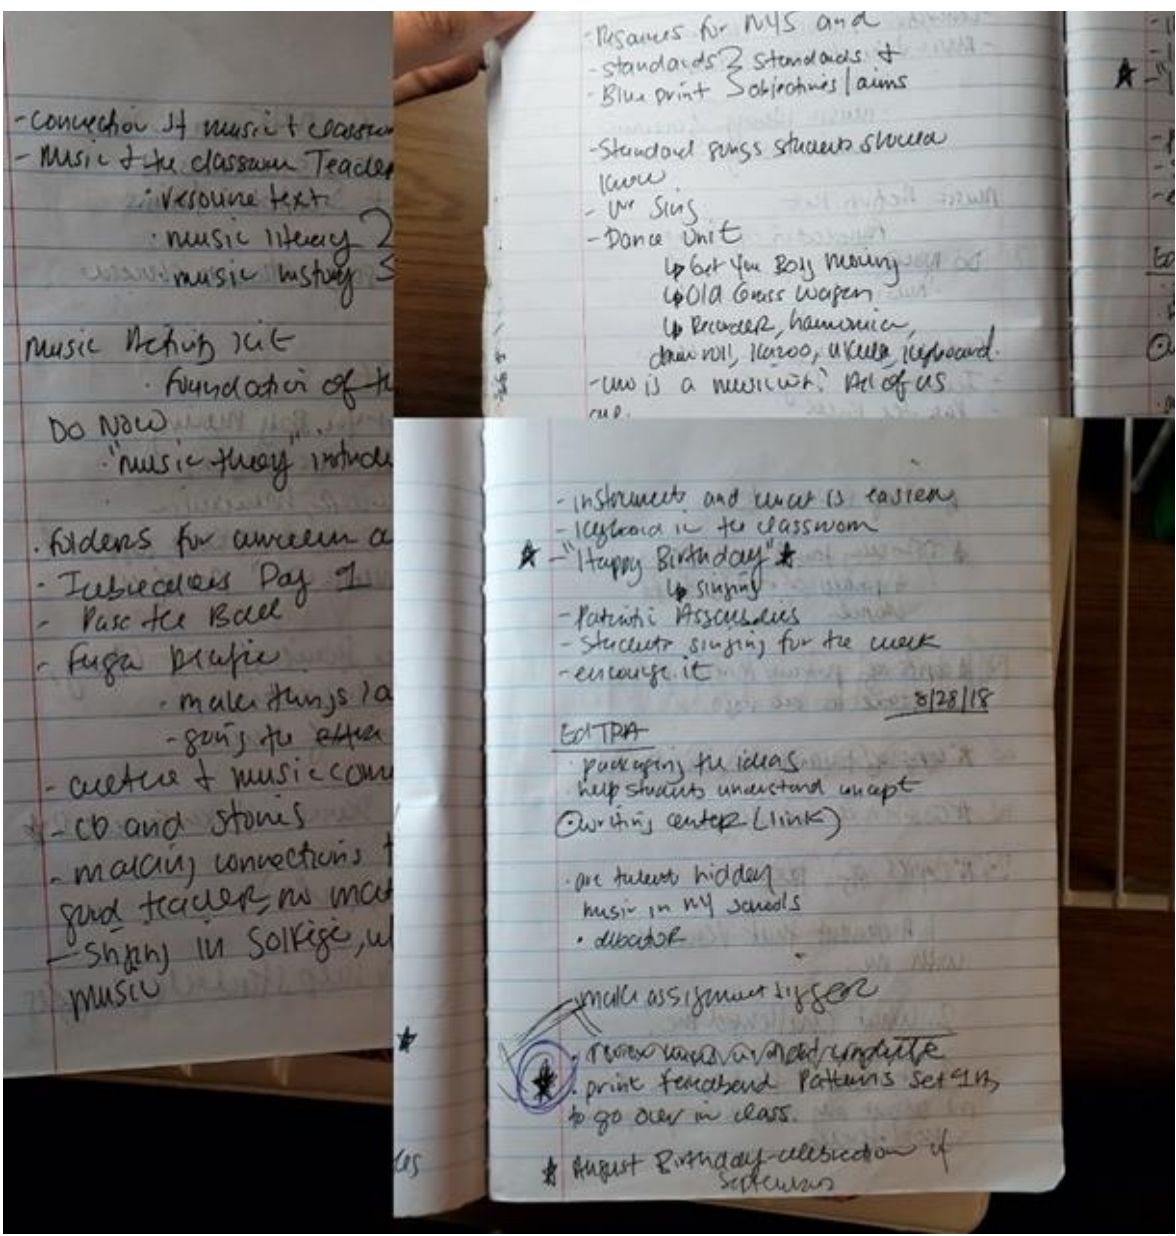 - connection of music + classroom
- Music & the classroom Teacher
· resource text
· music literacy }
· music history
Music Activity kit
· foundation of th
Do Now
· "music theory" include
· folders for
- Icebreakers Day 1
- Pass the Ball
- Fuga
· make things la
- going the extra
- culture + music conn
- CD and stories
- making connections t
good teacher, no mat
- Singing in Solfege, w
music
- Resources for NYS and
- standards } standards &
- Blue print } objectives / aims
- Standard songs students should
know
- We Sing
- Dance Unit
↳ Get Your Body Moving
↳ Old Brass Wagon
↳ Recorder, harmonica,
drum roll, Kazoo, Ukulele, keyboard.
- who is a musician? All of us
are.
- instruments and what is easier
- Keyboard in the classroom
★ - "Happy Birthday" ★
↳ singing
- Patriotic Assemblies
- Students singing for the week
- encourage it
8/28/18
EdTPA
· packaging the ideas
help students understand concept
⊙ writing center (link)
· are talent hidden
music in NY schools
·
make assignment bigger
★ · print Feierabend Patterns Set 1
to go over in class.
★ August Birthday celebration of
September